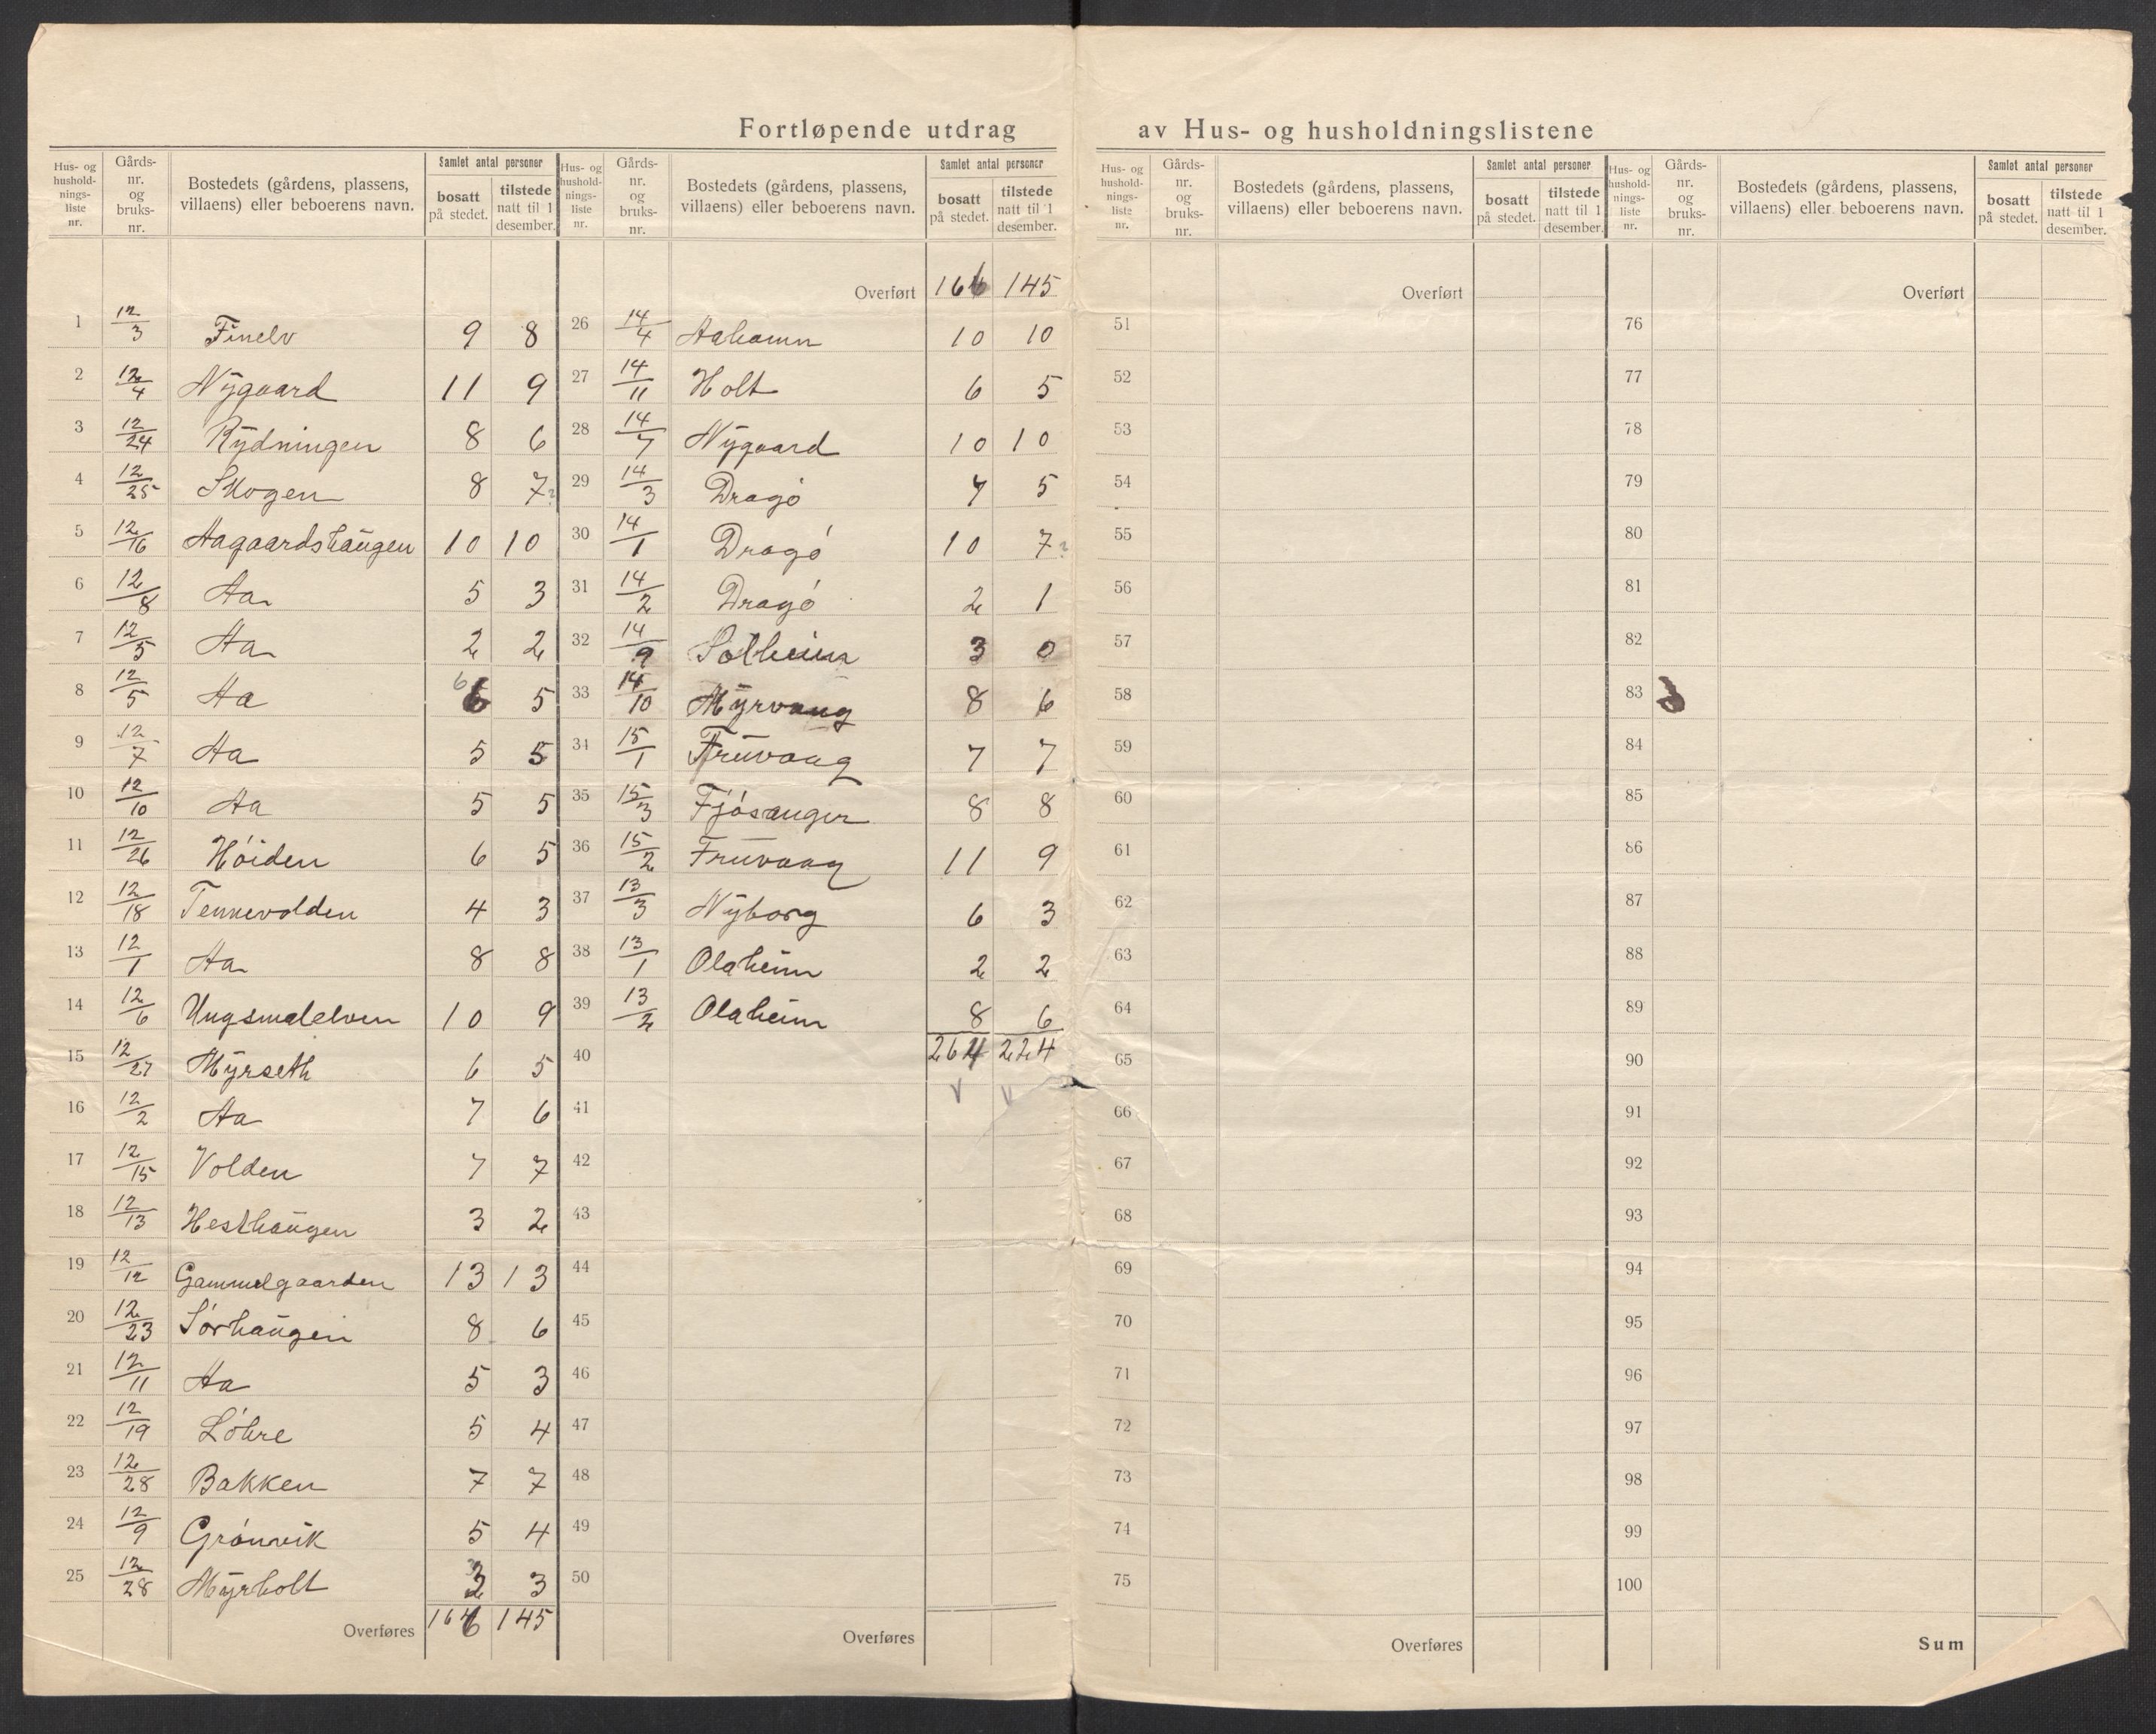 Fortløpende utdrag av Hus- og husholdningslistene
Hus- og husholdningsliste nr. | Gårds-nr. og bruks-nr. | Bostedets (gårdens, plassens, villaens) eller beboerens navn. | Samlet antal personer | bosatt på stedet. | tilstede natt til 1 desember.
1 12/3 Finelv 9 8
2 12/4 Nygaard 11 9
3 12/24 Rydningen 8 6
4 12/25 Skogen 8 7
5 12/16 Aagaardshaugen 10 10
6 12/8 Aa 5 3
7 12/5 Aa 2 2
8 12/5 Aa 6 5
9 12/7 Aa 5 5
10 12/10 Aa 5 5
11 12/26 Höiden 6 5
12 12/18 Tennevolden 4 3
13 12/1 Aa 8 8
14 12/6 Ungsmalelven 10 9
15 12/27 Myrseth 6 5
16 12/2 Aa 7 6
17 12/15 Volden 7 7
18 12/13 Hesthaugen 3 2
19 12/12 Gammelgaarden 13 13
20 12/23 Sörhaugen 8 6
21 12/11 Aa 5 3
22 12/19 Löhre 5 4
23 12/28 Bakken 7 7
24 12/9 Grönvik 5 4
25 12/28 Myrholt 3 3
Overføres 166 145
Hus- og husholdningsliste nr. | Gårds-nr. og bruks-nr. | Bostedets (gårdens, plassens, villaens) eller beboerens navn. | Samlet antal personer | bosatt på stedet. | tilstede natt til 1 desember.
Overført 166 145
26 14/4 Aahamn 10 10
27 14/11 Holt 6 5
28 14/7 Nygaard 10 10
29 14/3 Dragö 7 5
30 14/1 Dragö 10 7
31 14/2 Dragö 2 1
32 14/9 Solheim 3 0
33 14/10 Myrvang 8 6
34 15/1 Truvaag 7 7
35 15/3 Fjösanger 8 8
36 15/2 Truvaag 11 9
37 13/3 Nyborg 6 3
38 13/1 Olaheim 2 2
39 13/2 Olaheim 8 6
40 264 224
41
42
43
44
45
46
47
48
49
50
Overføres
Hus- og husholdningsliste nr. | Gårds-nr. og bruks-nr. | Bostedets (gårdens, plassens, villaens) eller beboerens navn. | Samlet antal personer | bosatt på stedet. | tilstede natt til 1 desember.
Overført
51
52
53
54
55
56
57
58
59
60
61
62
63
64
65
66
67
68
69
70
71
72
73
74
75
Overføres
Hus- og husholdningsliste nr. | Gårds-nr. og bruks-nr. | Bostedets (gårdens, plassens, villaens) eller beboerens navn. | Samlet antal personer | bosatt på stedet. | tilstede natt til 1 desember.
Overført
76
77
78
79
80
81
82
83
84
85
86
87
88
89
90
91
92
93
94
95
96
97
98
99
100
Sum